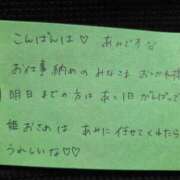 こんばんは♡ あみです
お仕事納めのみなさま おつかれ様
明日までの方は あと1日がんばって
姫おさめは あみに任せてくれたら
うれしいな♡♡